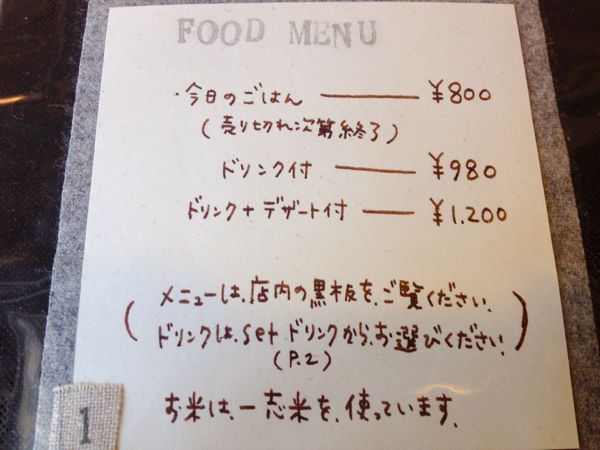 FOOD MENU
・今日のごはん ―― ¥800
(売り切れ次第終了)
ドリンク付 ―― ¥980
ドリンク+デザート付 ―― ¥1,200
(メニューは、店内の黒板を、ご覧ください。
ドリンクは、setドリンクから、お選びください。)
(P.2)
お米は、一志米を、使っています。
1